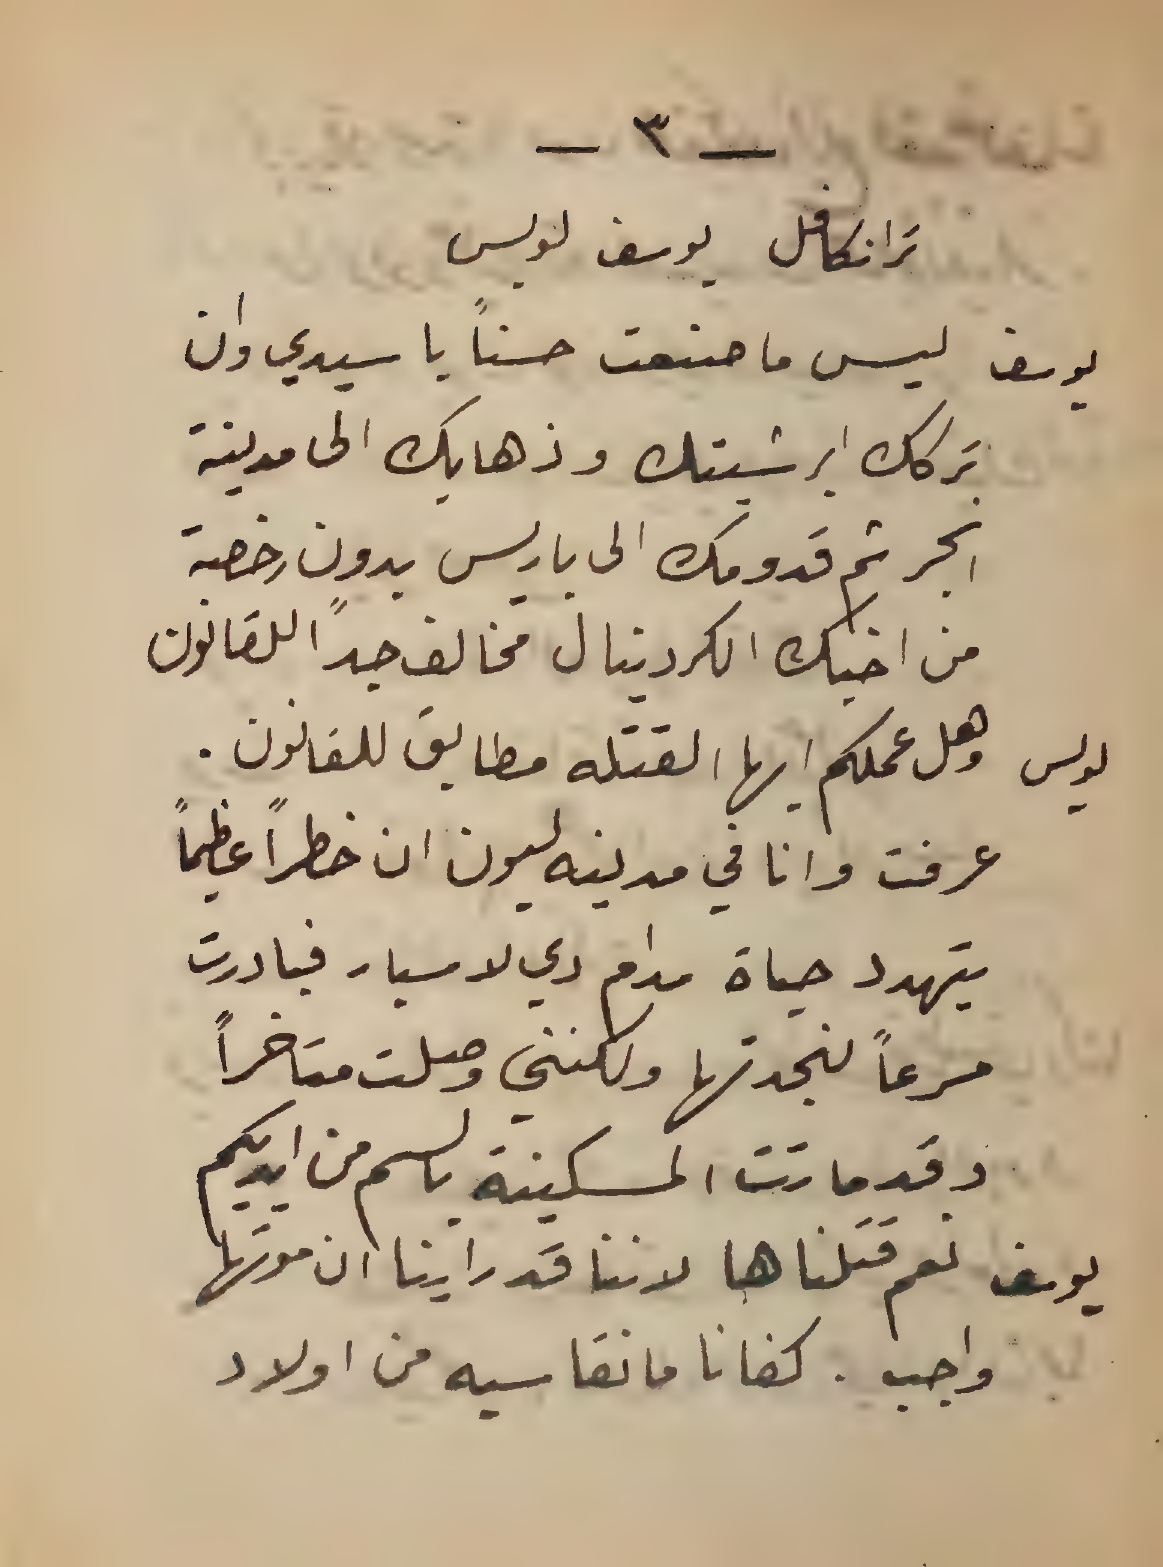 — ٣ —
ترانكافل يوسف لويس
يوسف ليس ما صنعت حسناً يا سيدي وان
تركك ابرشيتك وذهابك الى مدينة
انجر ثم قدومك الى باريس بدون رخصة
من اخيك الكردينال مخالف جداً للقانون
لويس وهل عملكم ايها القتله مطابق للقانون .
عرفت وانا في مدينه ليون ان خطراً عظيماً
يتهدد حياة مدام دي لامسبار فبادرت
مسرعاً لنجدتها ولكنني وصلت متاخراً
وقد ماتت المسكينة بالسم من ايديكم
يوسف نعم قتلناها لاننا قد راينا ان موتها
واجب . كفانا ما نقاسيه من اولاد